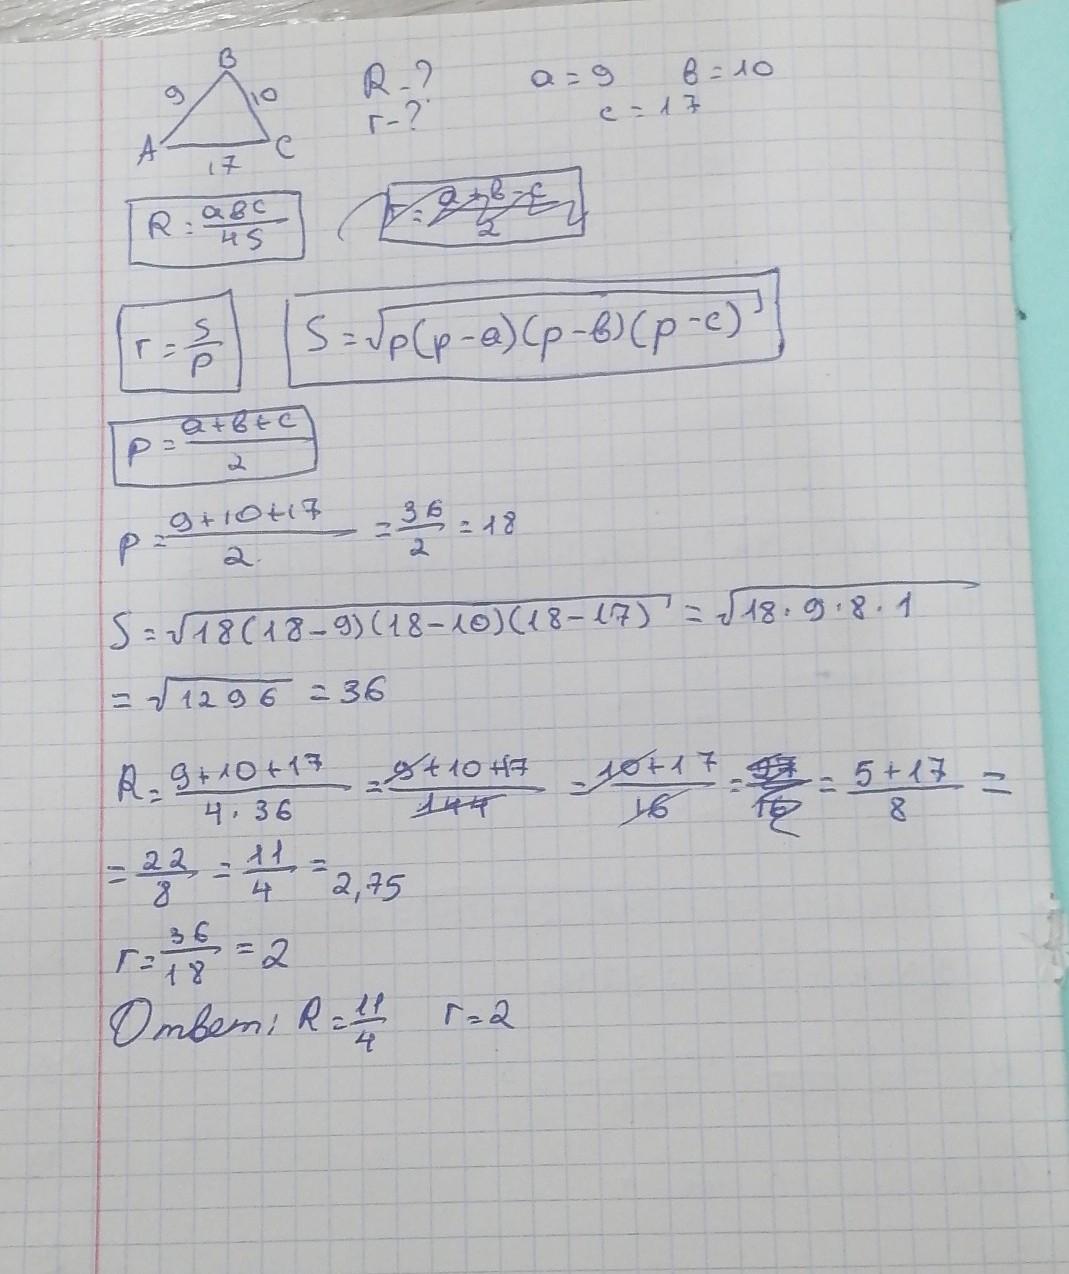 B
9 10
A C
17
R - ?
r - ?
a = 9 в = 10
c = 17
R = авс/4S
r = a + в - c/2
r = S/p
S = √p(p-a)(p-в)(p-c)
p = a+в+c/2
p = 9+10+17/2 = 36/2 = 18
S = √18(18-9)(18-10)(18-17) = √18·9·8·1
= √1296 = 36
R = 9+10+17/4·36 = 9+10+17/144 = 10+17/16 = 27/16 = 5+17/8 =
= 22/8 = 11/4 = 2,75
r = 36/18 = 2
Ответ: R = 11/4 r = 2